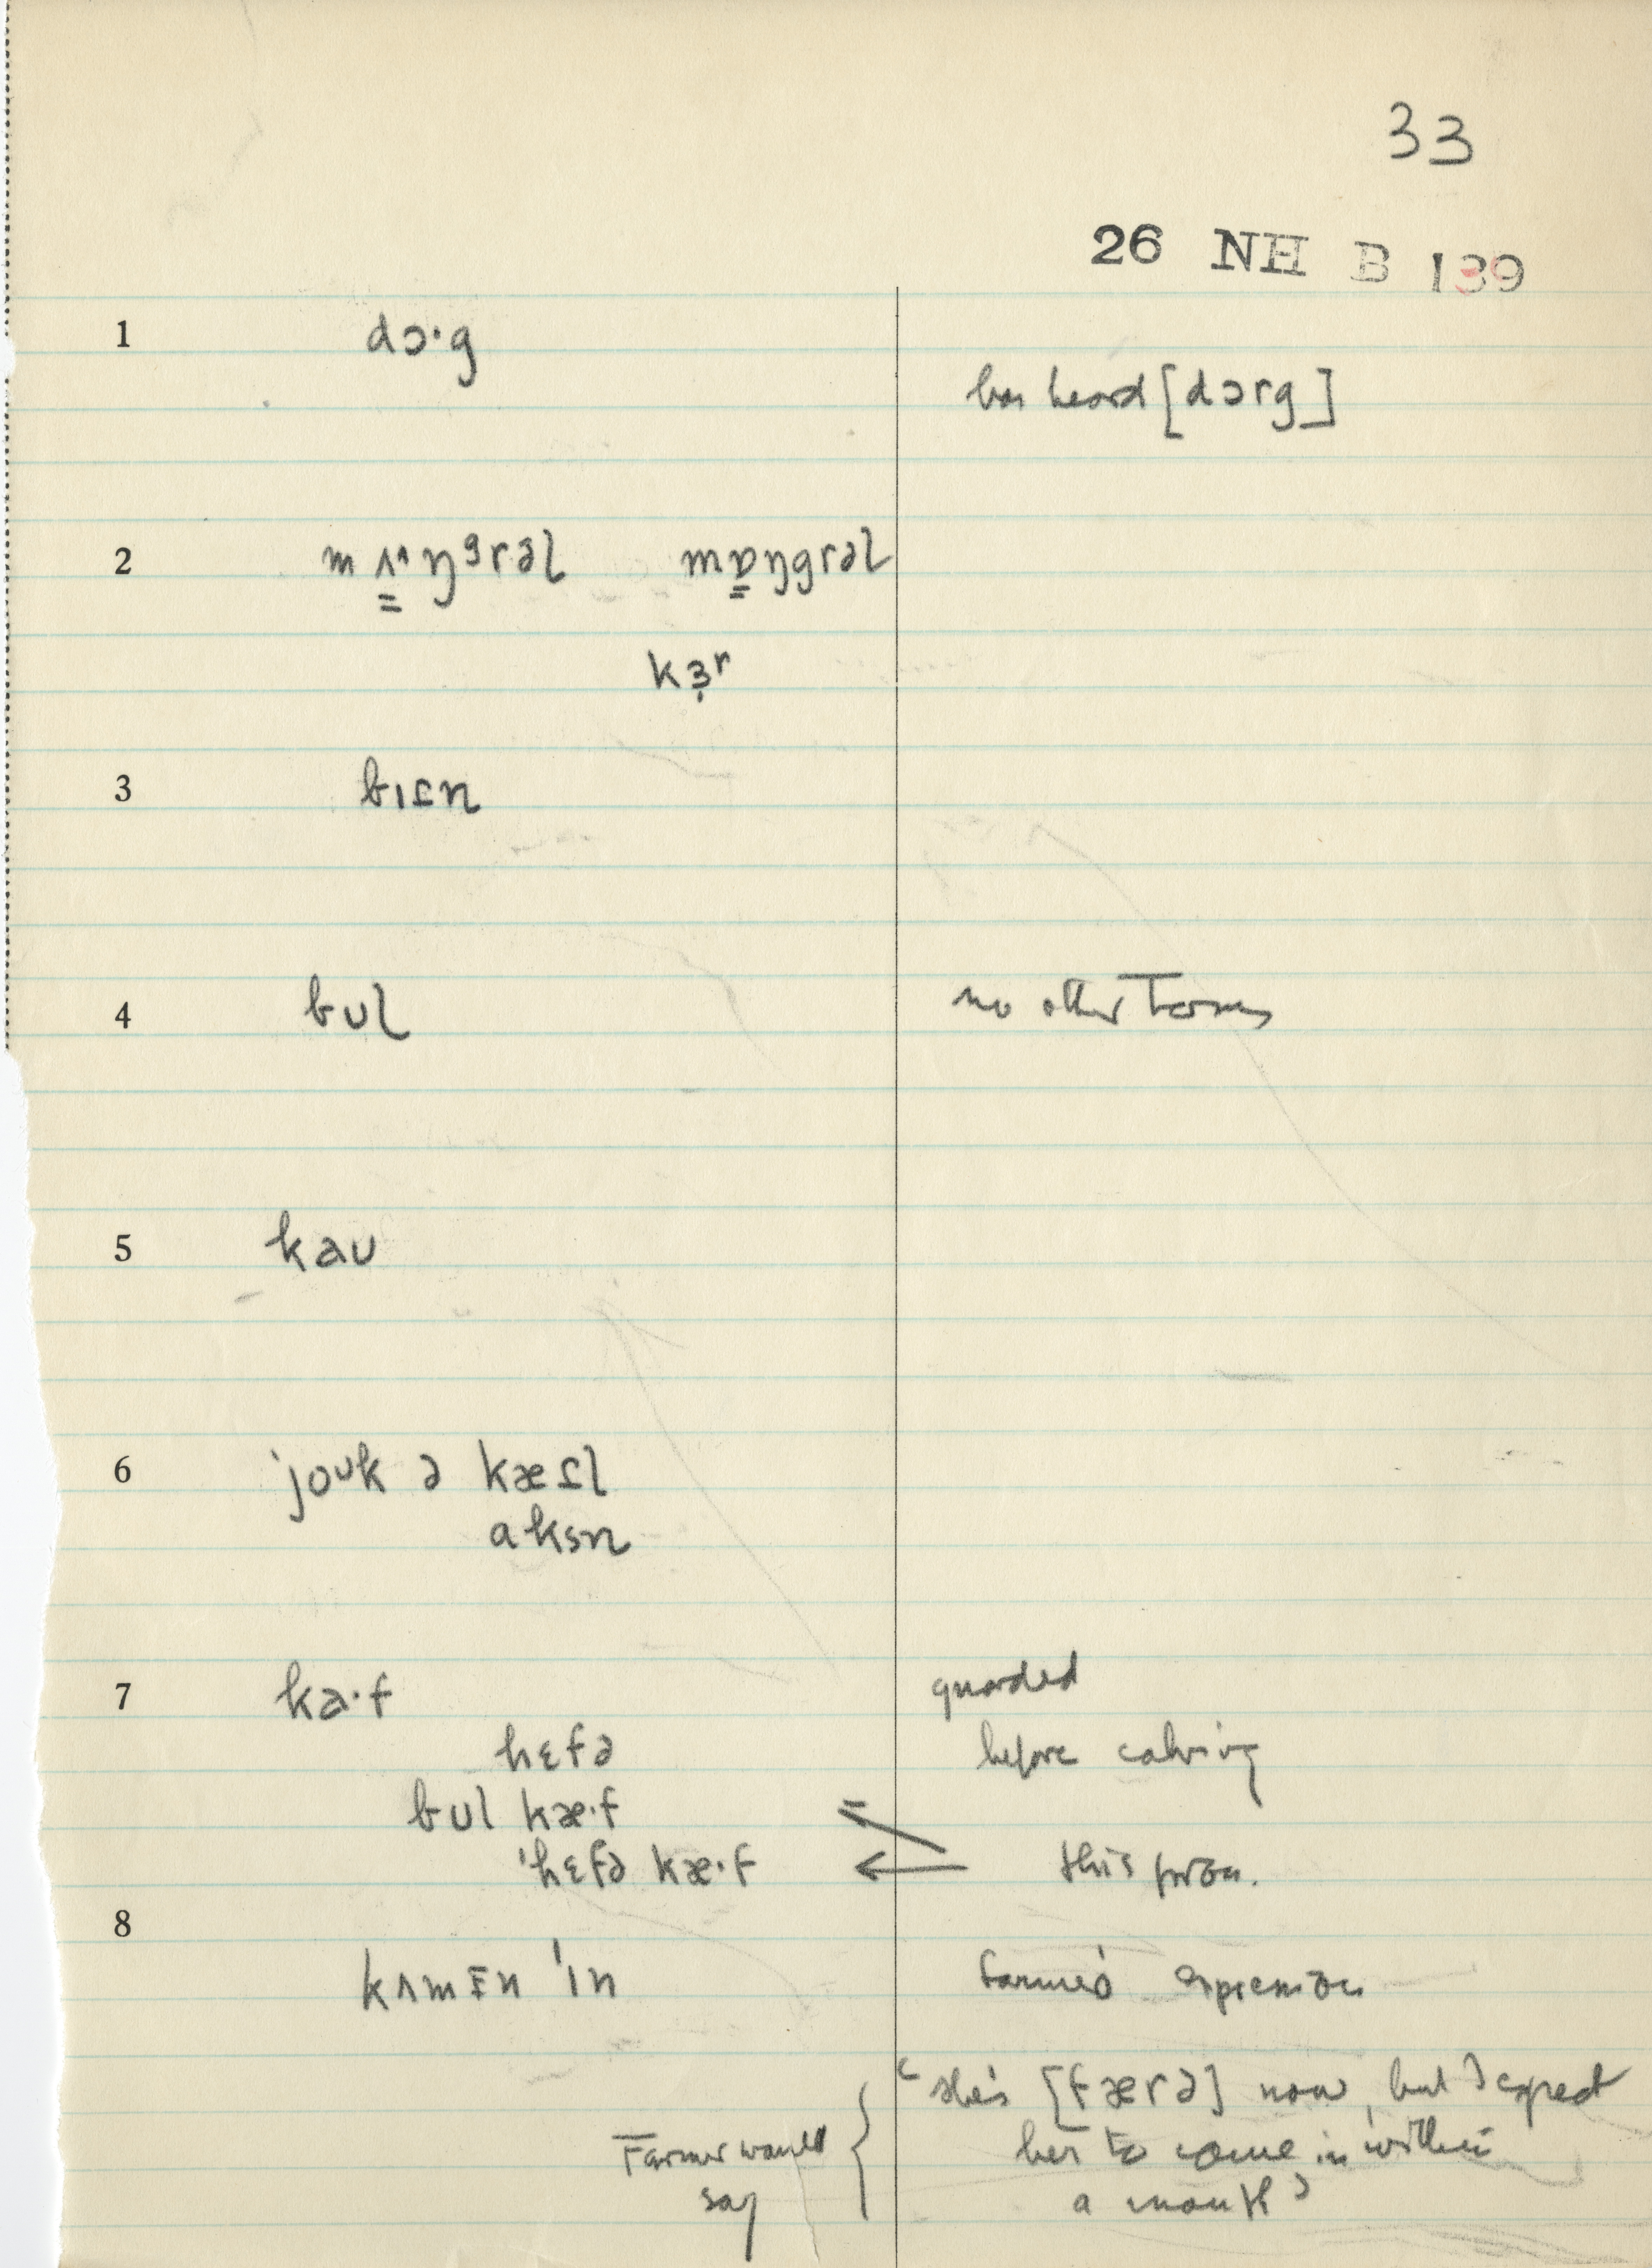 33
26 NH B 139
1 dɔ·g
has heard [dɔrg]
2 mʌ̳ˑŋᵍrəl mɒ̳ŋgrəl
kɜ̣ʳ
3 bɪɛn
4 bʊl no other terms
5 kaʊ
6 ˈjoᵘk ə kæɛl
aksn
7 ka·f guarded
hɛfə before calving
bʊl kæ·f =
ˈhɛfə kæ·f ← this pron.
8
kʌmɪn ˈɪn farmer's expression
"she's [færə] now, but I expect
Farmer would her to come in within
say a month"